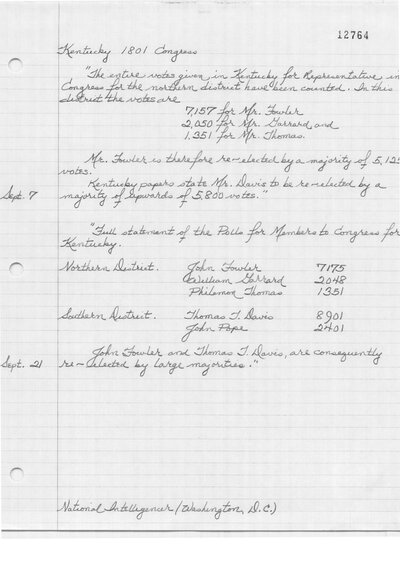 12764
Kentucky 1801 Congress
"The entire votes given in Kentucky for Representative in
Congress for the northern district have been counted. In this
district the votes are
7,157 for Mr. Fowler
2,050 for Mr. Garrard and
1,351 for Mr. Thomas.
Mr. Fowler is therefore re-elected by a majority of 5,125
votes.
Kentucky papers state Mr. Davis to be re-elected by a
Sept. 7 majority of upwards of 5,800 votes."
"Full statement of the Polls for Members to Congress for
Kentucky.
Northern District. John Fowler 7175
William Garrard 2048
Philemon Thomas 1351
Southern District. Thomas T. Davis 8901
John Pope 2401
John Fowler and Thomas T. Davis, are consequently
Sept. 21 re-elected by large majorities."
National Intelligencer (Washington, D.C.)